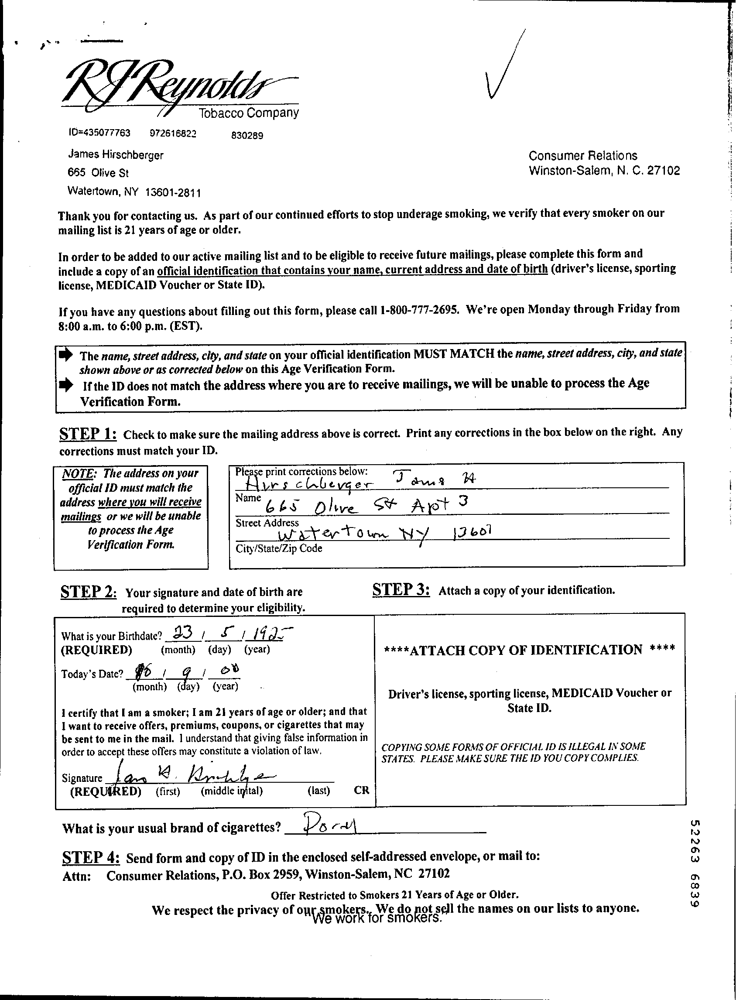 RJReynolds
Tobacco Company
ID=435077763 972616822 830289
James Hirschberger
665 Olive St
Watertown, NY 13601-2811
Consumer Relations
Winston-Salem, N. C. 27102
Thank you for contacting us. As part of our continued efforts to stop underage smoking, we verify that every smoker on our
mailing list is 21 years of age or older.
In order to be added to our active mailing list and to be eligible to receive future mailings, please complete this form and
include a copy of an official identification that contains your name, current address and date of birth (driver's license, sporting
license, MEDICAID Voucher or State ID).
If you have any questions about filling out this form, please call 1-800-777-2695. We're open Monday through Friday from
8:00 a.m. to 6:00 p.m. (EST).
The name, street address, city, and state on your official identification MUST MATCH the name, street address, city, and state
shown above or as corrected below on this Age Verification Form.
If the ID does not match the address where you are to receive mailings, we will be unable to process the Age
Verification Form.
STEP 1: Check to make sure the mailing address above is correct. Print any corrections in the box below on the right. Any
corrections must match your ID.
NOTE: The address on your
official ID must match the
address where you will receive
mailings or we will be unable
to process the Age
Verification Form.
Please print corrections below:
Hirschberger James H
Name
665 Olive St Apt 3
Street Address
Watertown NY 13601
City/State/Zip Code
STEP 2: Your signature and date of birth are
required to determine your eligibility.
What is your Birthdate? 23 / 5 / 192
(REQUIRED) (month) (day) (year)
Today's Date? / 9 / 00
(month) (day) (year)
I certify that I am a smoker; I am 21 years of age or older; and that
I want to receive offers, premiums, coupons, or cigarettes that may
be sent to me in the mail. I understand that giving false information in
order to accept these offers may constitute a violation of law.
Signature
(REQUIRED) (first) (middle inital) (last) CR
STEP 3: Attach a copy of your identification.
****ATTACH COPY OF IDENTIFICATION ****
Driver's license, sporting license, MEDICAID Voucher or
State ID.
COPYING SOME FORMS OF OFFICIAL ID IS ILLEGAL IN SOME
STATES. PLEASE MAKE SURE THE ID YOU COPY COMPLIES.
What is your usual brand of cigarettes? Doral
STEP 4: Send form and copy of ID in the enclosed self-addressed envelope, or mail to:
Attn: Consumer Relations, P.O. Box 2959, Winston-Salem, NC 27102
Offer Restricted to Smokers 21 Years of Age or Older.
We respect the privacy of our smokers. We do not sell the names on our lists to anyone.
We work for smokers.
52263 6839